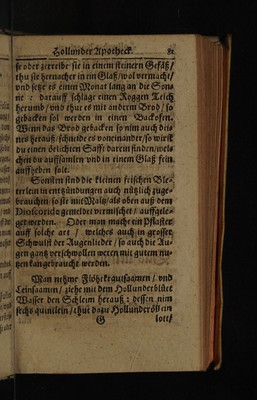 Hollunder Apotheck. 81
se oder zerreibe sie in einem steinern Gefäß/
thu sie hernacher in ein Glaß/ wol vermacht/
und setze es einen Monat lang an die Son-
ne: darauff schlage einen Roggen Teich
herumb/ und thue es mit anderm Brod/ so
gebacken sol werden in einen Backofen.
Wenn das Brod gebacken so nim auch die-
nes herauß/ schneide es voneinander/ so wirst
du einen öelichten Safft darein finden/ wel-
chen du auffsamlen und in einem Glaß fein
auffheben solt.
Sonsten sind die kleinen frischen Ble-
terlein in entzündungen auch nützlich zuge-
brauchen/ so sie mit Maltz/ als oben auß dem
Dioscoride gemeldet vermischet/ auffgele-
get werden. Oder man mache ein Pflaster
auff solche art / welches auch in grosser
Schwulst der Augenlieder / so auch die Au-
gen gantz verschwollen weren mit gutem nu-
tzen kan gebraucht werden.
Man nehme Flöhekrautsaamen / und
Leinsaamen/ ziehe mit dem Hollunderblüet
Wasser den Schleim herauß: dessen nim
sechs quintlein/ thue dazu Hollunderöß ein
G lott/